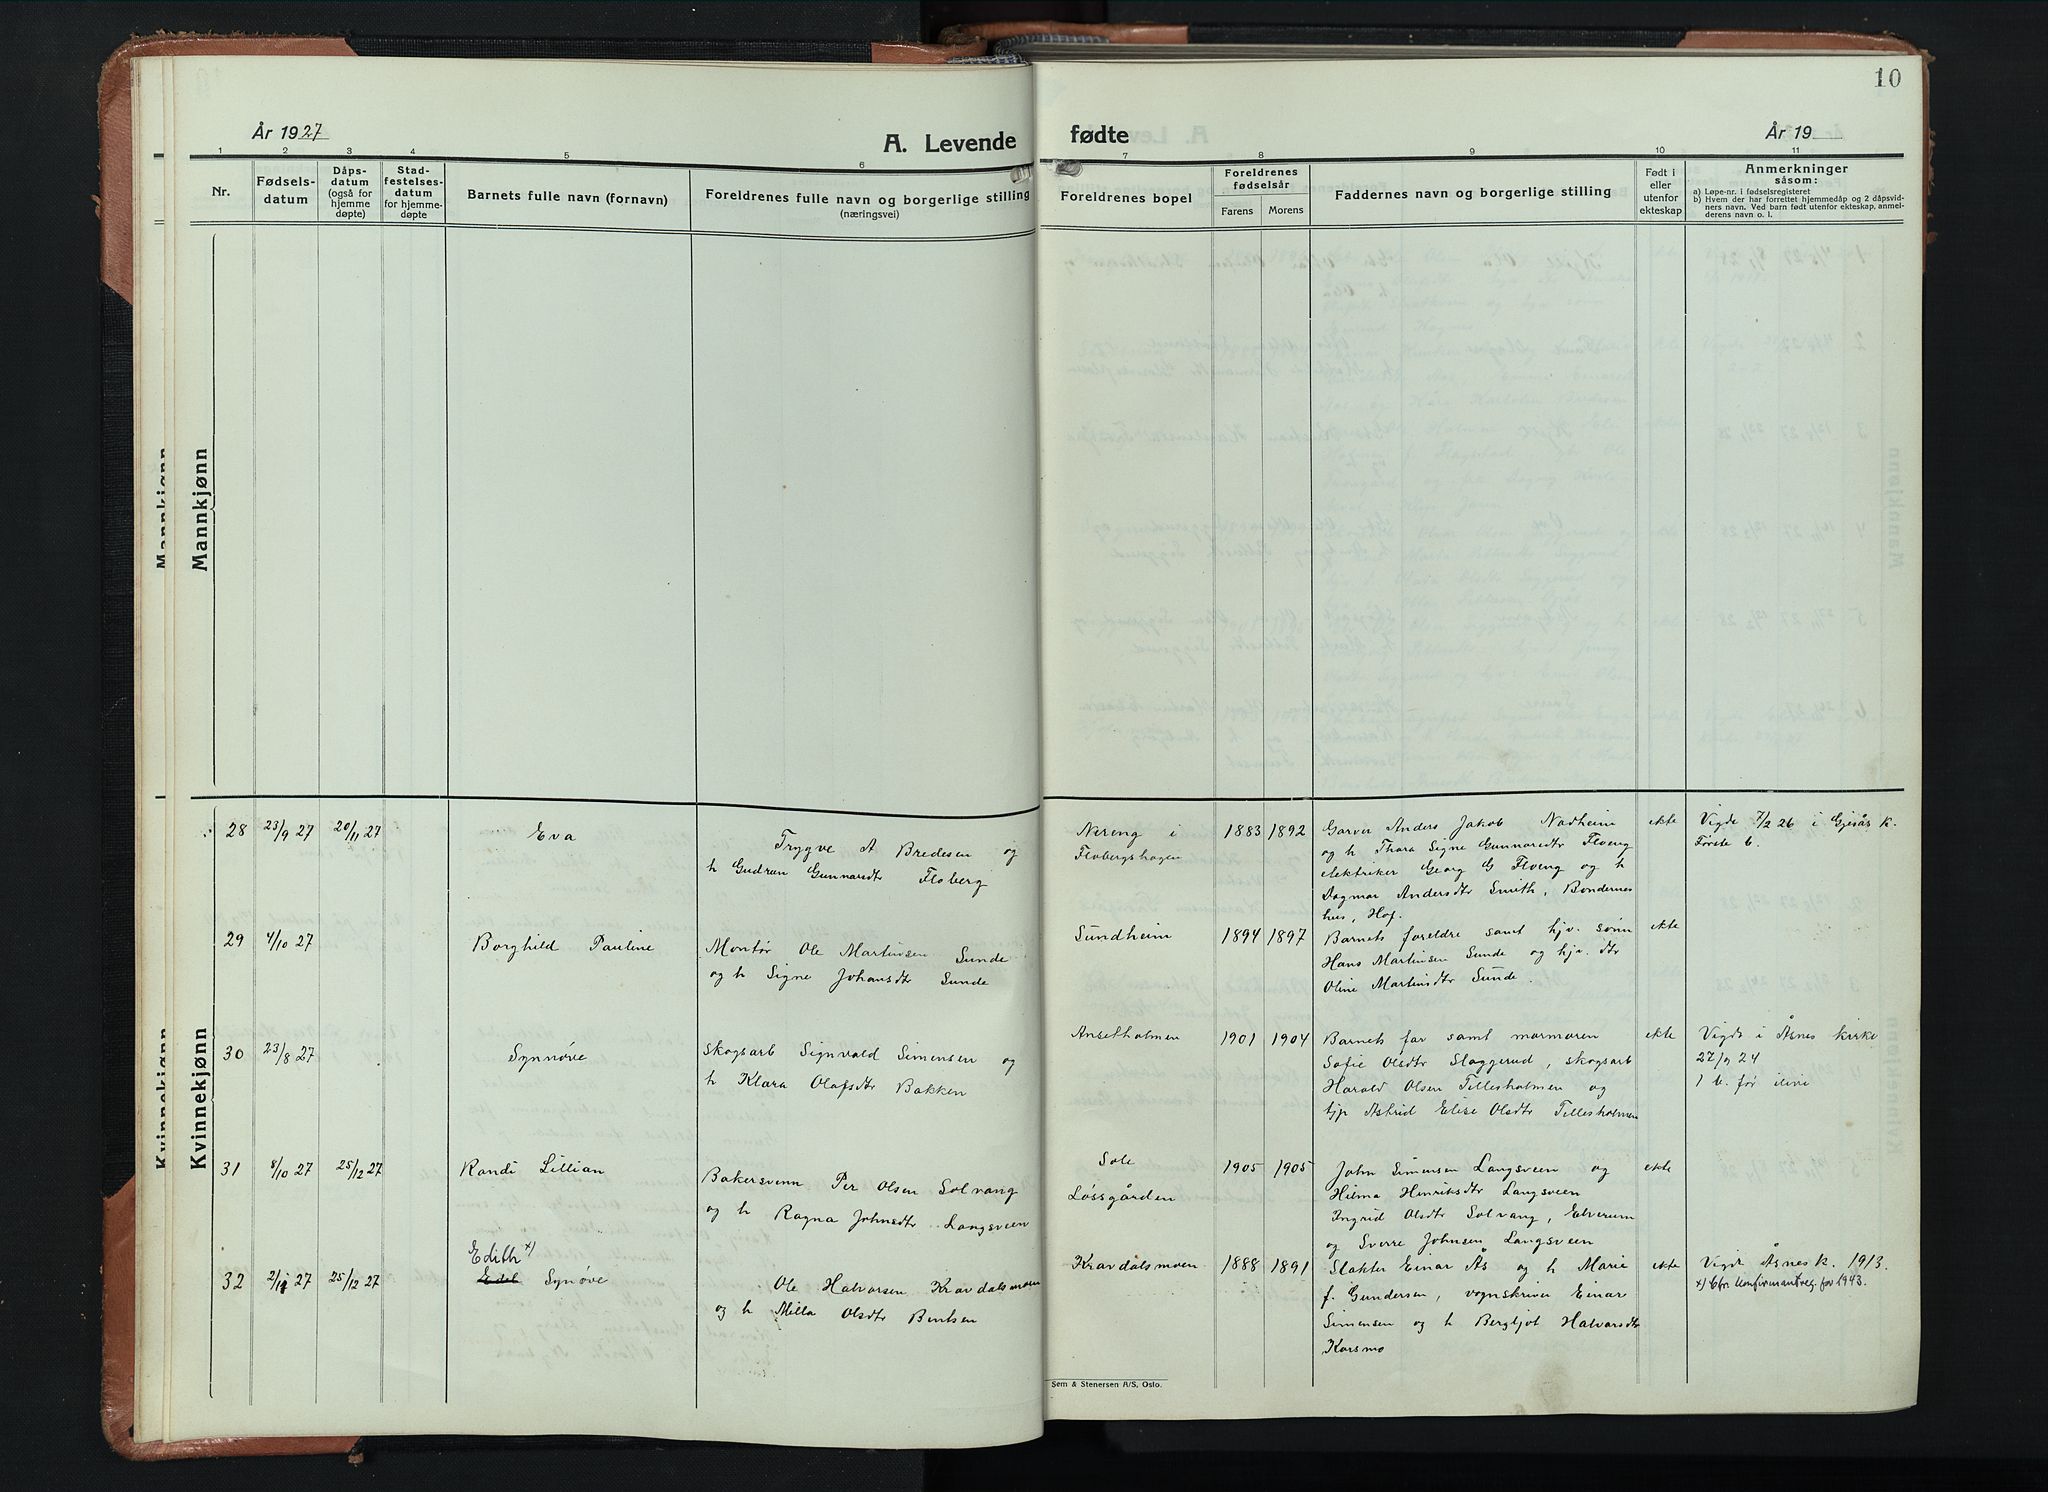 10
År 1927
A. Levende fødte
År 19
1 2 3 4 5 6 7 8 9 10 11
Nr.
Fødsels-
datum
Dåps-
datum
(også for
hjemme
døpte)
Stad-
festelses-
datum
for hjemme-
døpte
Barnets fulle navn (fornavn)
Foreldrenes fulle navn og borgerlige stilling
(næringsvei)
Foreldrenes bopel
Foreldrenes
fødselsår
Farens Morens
Faddernes navn og borgerlige stilling
Født i
eller
utenfor
ekteskap
Anmerkninger
såsom:
a) Løpe-nr. i fødselsregisteret
b) Hvem der har forrettet hjemmedåp og 2 dåpsvid-
ners navn. Ved barn født utenfor ekteskap, anmel-
derens navn o. l.
Mannkjønn
Mannkjønn
Kvinnekjønn
Kvinnekjønn
28 23/9 27 20/11 27
Eva
Trygve A Bredesen og
h Gudrun Gunnarsdtr Floberg
Nereng i
Flobergshagen
1883 1892
Garver Anders Jakob Nadheim
og h Thora Signe Gunnarsdtr Floeng
elektriker Georg G Floeng og h
Dagmar Andersdtr Smith, Bondernes
hus, Hof.
ekte
Vigde 7/2 26 i Gjesås K.
Første b.
29 4/10 27
Borghild Pauline
Montør Ole Martinsen Sunde
og h Signe Johansdtr Sunde
Sundheim
1894 1897
Barnets foreldre samt hjv. sønn
Hans Martinsen Sunde og hjv. dtr
Oline Martinsdtr Sunde.
ekte
30 23/8 27
Synnøve
Skogsarb Signvald Simensen og
h Klara Olafsdtr Bakken
Ansetholmen
1901 1904
Barnets far samt mormoren
Sofie Olsdtr Slaggerud, skogsarb
Harald Olsen Tillesholmen og
tjp Astrid Elise Olsdtr Tillesholmen
ekte
Vigde i Åsnes kirke
27/9 24
1 b. før ilive
31 8/10 27 25/12 27
Randi Lillian
Bakersvenn Per Olsen Solvang
og h Ragna Johnsdtr Langsveen
Sole
Løssgården
1905 1905
John Simensen Langsveen og
Hilma Henriksdtr Langsveen
Ingrid Olsdtr Solvang, Elverum
og Sverre Johnsen Langsveen
ekte
32 2/11 27 25/12 27
Edith x)
Edel Synøve
Ole Halvorsen Kravdalsmoen
og h Milla Olsdtr Bentsen
Kravdalsmoen
1888 1891
Slakter Einar Ås og h Marie
f. Gundersen, vognskriver Einar
Simensen og h Bergljot Halvorsdtr
Korsmo
ekte
Vigde Åsnes k. 1913.
x) Cfr. konfirmantreg. for 1943.
Sem & Stenersen A/S, Oslo.